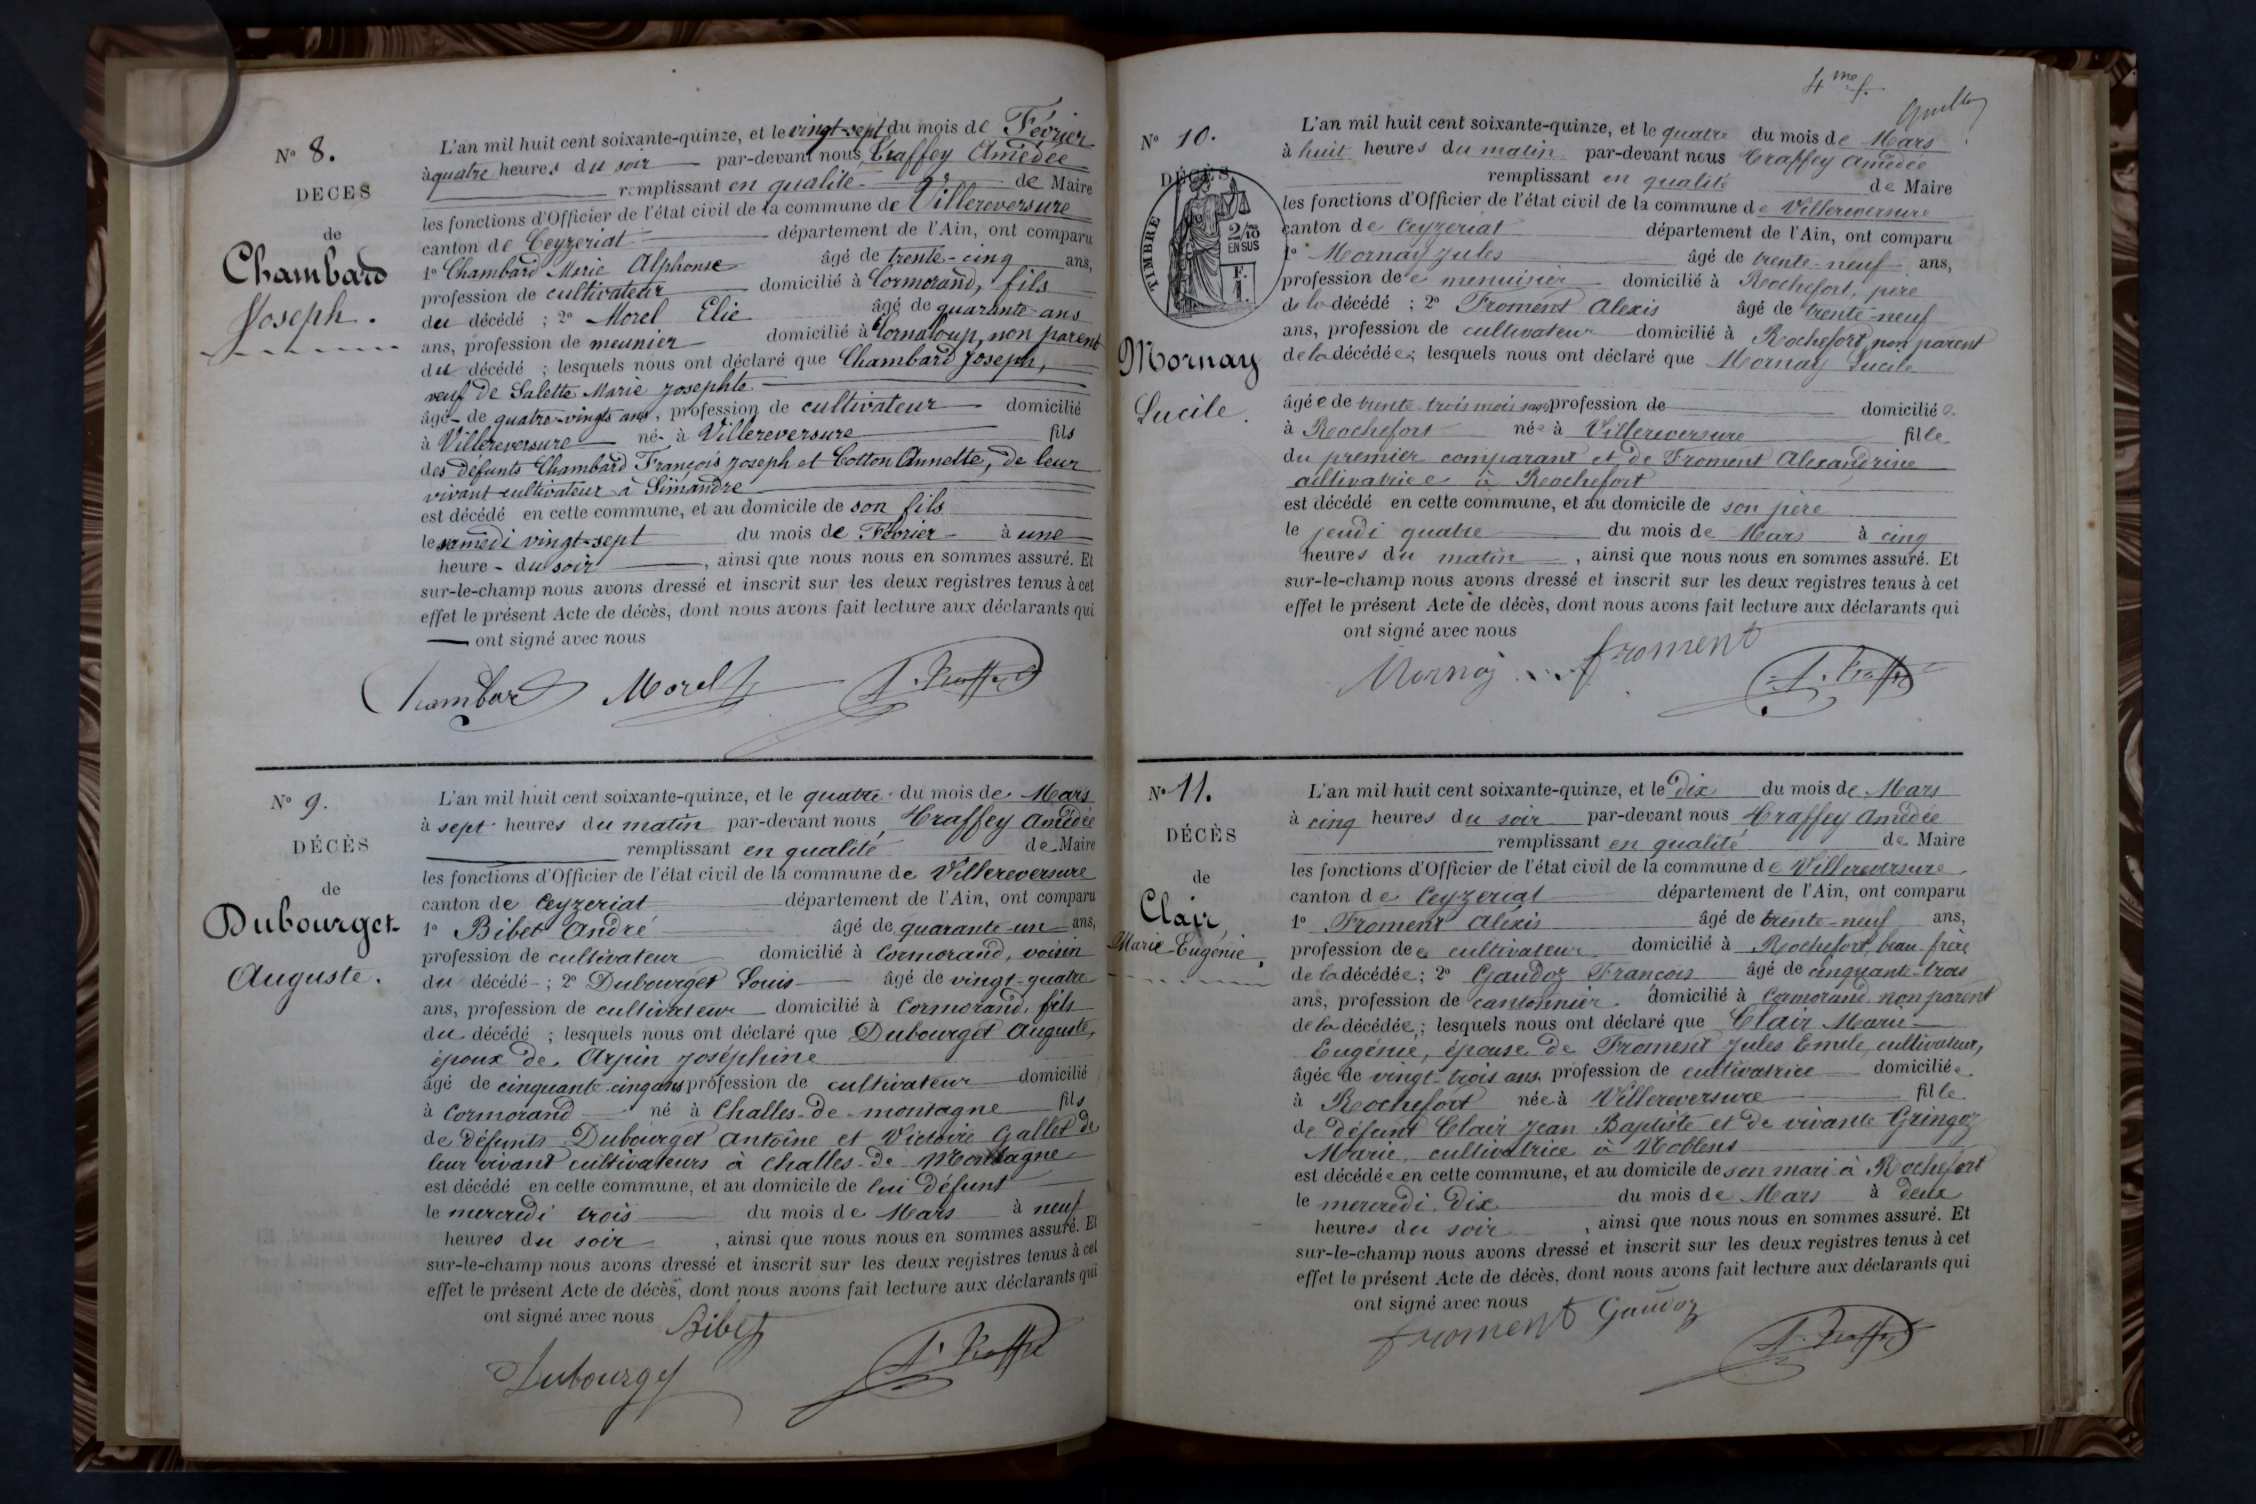 N° 8.
DECES
de
Chambard
Joseph.
L'an mil huit cent soixante-quinze, et le vingt-sept du mois de Février
à quatre heures du soir par-devant nous, Craffey Amédée
remplissant en qualité de Maire
les fonctions d'Officier de l'état civil de la commune de Villereversure
canton de Ceyzeriat département de l'Ain, ont comparu
1° Chambard Marie Alphonse âgé de trente-cinq ans,
profession de cultivateur domicilié à Cormorand, fils
du décédé ; 2° Morel Elie âgé de quarante ans
ans, profession de meunier domicilié à Cornaloup, non parent
du décédé ; lesquels nous ont déclaré que Chambard Joseph,
veuf de Salette Marie Josephte
âgé de quatre-vingts ans, profession de cultivateur domicilié
à Villereversure né à Villereversure fils
des défunts Chambard François Joseph et Cotton Annette, de leur
vivant cultivateur à Simandre
est décédé en cette commune, et au domicile de son fils
le samedi vingt-sept du mois de Février à une
heure du soir, ainsi que nous nous en sommes assuré. Et
sur-le-champ nous avons dressé et inscrit sur les deux registres tenus à cet
effet le présent Acte de décès, dont nous avons fait lecture aux déclarants qui
ont signé avec nous
Chambard Morel
N° 9.
DÉCÈS
de
Dubourget
Auguste.
L'an mil huit cent soixante-quinze, et le quatre du mois de Mars
à sept heures du matin par-devant nous, Craffey Amédée
remplissant en qualité de Maire
les fonctions d'Officier de l'état civil de la commune de Villereversure
canton de Ceyzeriat département de l'Ain, ont comparu
1° Bibet André âgé de quarante-un ans,
profession de cultivateur domicilié à Cormorand, voisin
du décédé ; 2° Dubourget Louis âgé de vingt-quatre
ans, profession de cultivateur domicilié à Cormorand, fils
du décédé ; lesquels nous ont déclaré que Dubourget Auguste,
époux de Arpin Joséphine
âgé de cinquante-cinq ans profession de cultivateur domicilié
à Cormorand né à Challes-de-montagne fils
de défunts Dubourget Antoine et Victoire Gallet de
leur vivant cultivateurs à Challes-de Montagne
est décédé en cette commune, et au domicile de lui défunt
le mercredi trois du mois de Mars à neuf
heures du soir, ainsi que nous nous en sommes assuré. Et
sur-le-champ nous avons dressé et inscrit sur les deux registres tenus à cet
effet le présent Acte de décès, dont nous avons fait lecture aux déclarants qui
ont signé avec nous Bibet
Dubourget
4me f.
N° 10.
DÉCÈS
TIMBRE
2/10
EN SUS
Mornay
Lucile.
L'an mil huit cent soixante-quinze, et le quatre du mois de Mars
à huit heures du matin par-devant nous Craffey Amédée
remplissant en qualité de Maire
les fonctions d'Officier de l'état civil de la commune de Villereversure
canton de Ceyzeriat département de l'Ain, ont comparu
1° Mornay Jules âgé de trente-neuf ans,
profession de menuisier domicilié à Rochefort, père
de la décédé ; 2° Froment Alexis âgé de trente-neuf
ans, profession de cultivateur domicilié à Rochefort, non parent
de la décédée ; lesquels nous ont déclaré que Mornay Lucile
âgée de trente trois mois sans profession de domicilié
à Rochefort née à Villereversure fille
du premier comparant et de Froment Alexandrine
cultivatrice à Rochefort
est décédé en cette commune, et au domicile de son père
le jeudi quatre du mois de Mars à cinq
heures du matin, ainsi que nous nous en sommes assuré. Et
sur-le-champ nous avons dressé et inscrit sur les deux registres tenus à cet
effet le présent Acte de décès, dont nous avons fait lecture aux déclarants qui
ont signé avec nous
Mornay froment
N° 11.
DÉCÈS
de
Clair,
Marie-Eugénie.
L'an mil huit cent soixante-quinze, et le Dix du mois de Mars
à cinq heures du soir par-devant nous Craffey Amédée
remplissant en qualité de Maire
les fonctions d'Officier de l'état civil de la commune de Villereversure
canton de Ceyzeriat département de l'Ain, ont comparu
1° Froment Aléxis âgé de trente-neuf ans,
profession de cultivateur domicilié à Rochefort, beau-frère
de la décédée ; 2° Gaudoz François âgé de cinquante-trois
ans, profession de cantonnier domicilié à Cormorand non parent
de la décédée ; lesquels nous ont déclaré que Clair Marie
Eugénie, épouse de Froment Jules Emile, cultivateur,
âgée de vingt-trois ans profession de cultivatrice domiciliée
à Rochefort née à Villereversure fille
de défunt Clair Jean Baptiste et de vivante Gringoz
Marie cultivatrice à Noblens
est décédée en cette commune, et au domicile de son mari à Rochefort
le mercredi Dix du mois de Mars à deux
heures du soir, ainsi que nous nous en sommes assuré. Et
sur-le-champ nous avons dressé et inscrit sur les deux registres tenus à cet
effet le présent Acte de décès, dont nous avons fait lecture aux déclarants qui
ont signé avec nous
froment Gaudoz